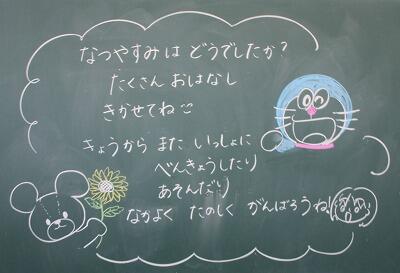 なつやすみは どうでしたか？
たくさん おはなし
きかせてね
きょうから また いっしょに
べんきょうしたり
あそんだり
なかよく たのしく がんばろうね!